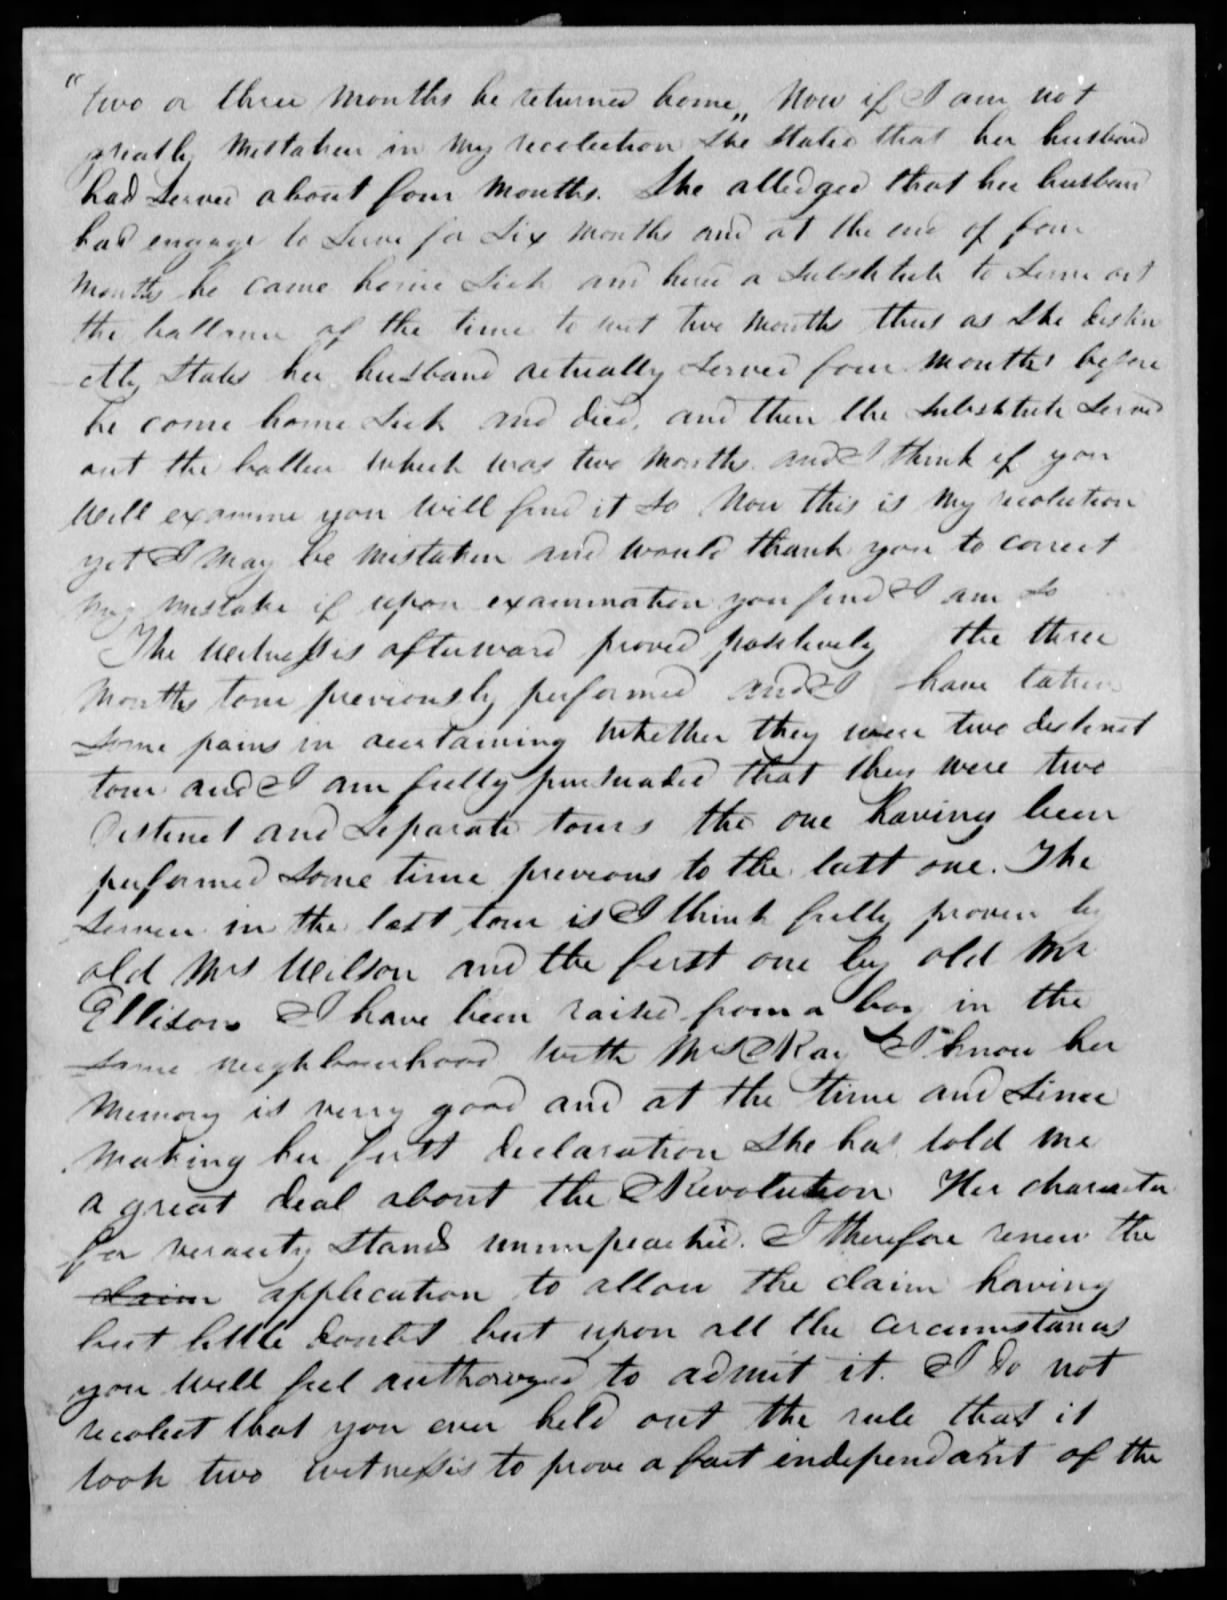 "two or three months he returned home,, Now if I am not
greatly mistaken in my recolection She Stated that her husband
had Served about four months. She alledged that her husban
had engage to Serve for Six months and at the end of four
months he came home Sick and hired a Substitute to Serve out
the ballance of the time to wit two months thus as She distin
ctly States her husband actually Served four months before
he come home Sick and died, and then the Substitute Served
out the ballen which was two months and I think if you
will examine you will find it So Now this is my recolection
yet I may be mistaken and would thank you to correct
my mistake if upon examination you find I am So
The witnesses afterward proved positively the three
months tour previously performed and I have taken
Some pains in ascertaining whether they were two distinct
tour and I am fully pursuaded that they were two
Distinct and Separate tours the one having been
performed Some time previous to the last one. The
Servece in the last tour is I think fully proven by
old Mrs Wilson and the first one by old Mr
Ellison I have been raised from a boy in the
Same neighbourhood with Mrs Ray & I know her
memory is very good and at the time and Since
making her first declaration She has told me
a great deal about the Revolution Her character
for veracity Stands unimpeached. I therefore renew the
claim application to allow the claim having
but little doubt but upon all the circumstances
you will feel authorized to admit it. I do not
recolect that you ever held out the rule that it
took two witnesses to prove a fact independant of the